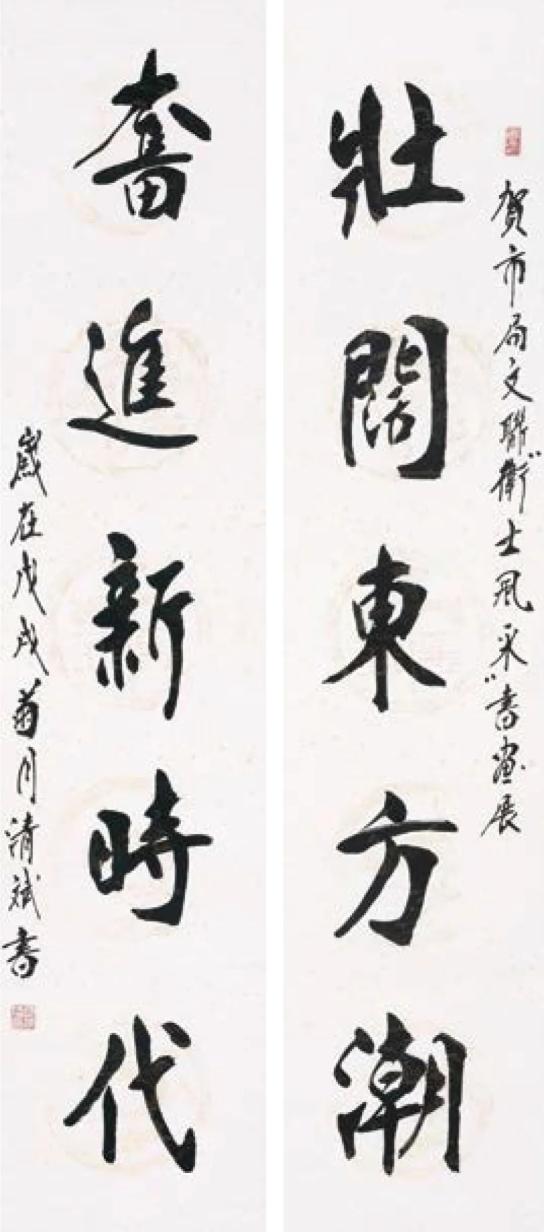 賀市局文聯“衛士風采”書畫展
壯闊東方潮
奮進新時代
歲在戊戌菊月清斌書